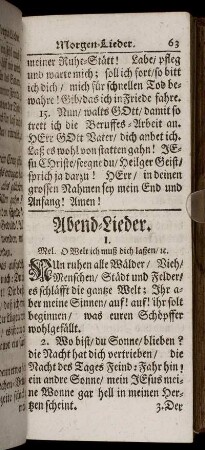 Morgen-Lieder. 63
meiner Ruhe-Stätt! Labe/ pfleg
und warte mich; soll ich fort/ so bitt
ich dich/ mich für schnellen Tod be-
wahre! Gib/ das ich in Friede fahre.
15. Nun/ walts GOtt/ damit so
trett ich die Beruffes-Arbeit an.
HErr GOtt Vater/ dich anbet ich.
Laß es wohl von statten gahn! JE-
su CHriste/ segne du/ Heilger Geist/
sprich ja darzu! HErr/ in deinen
grossen Nahmen sey mein End und
Anfang! Amen!
Abend-Lieder.
I.
Mel. O Welt ich muß dich lassen/ ꝛc.
NUn ruhen alle Wälder/ Vieh/
Menschen/ Städt und Felder/
es schläfft die gantze Welt; Ihr a-
ber meine Sinnen/ auf! auf! ihr solt
beginnen/ was euren Schöpffer
wohlgefällt.
2. Wo bist/ du Sonne/ blieben?
die Nacht hat dich vertrieben/ die
Nacht des Tages Feind: Fahr hin/
ein andre Sonne/ mein JEsus mei-
ne Wonne gar hell in meinen Her-
tzen scheint.
3. Der